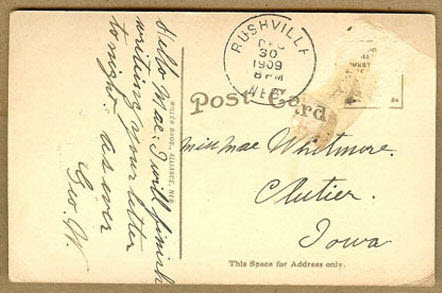 Hello Mae. I will finish
writing your letter
tonight. as ever
Geo. W.
MILLER BROS., ALLIANCE, NEB.
RUSHVILLE
DEC
30
1909
8 PM
NEB.
Post Card
Miss Mae Whitmore.
Clutier.
Iowa
This Space for Address only.